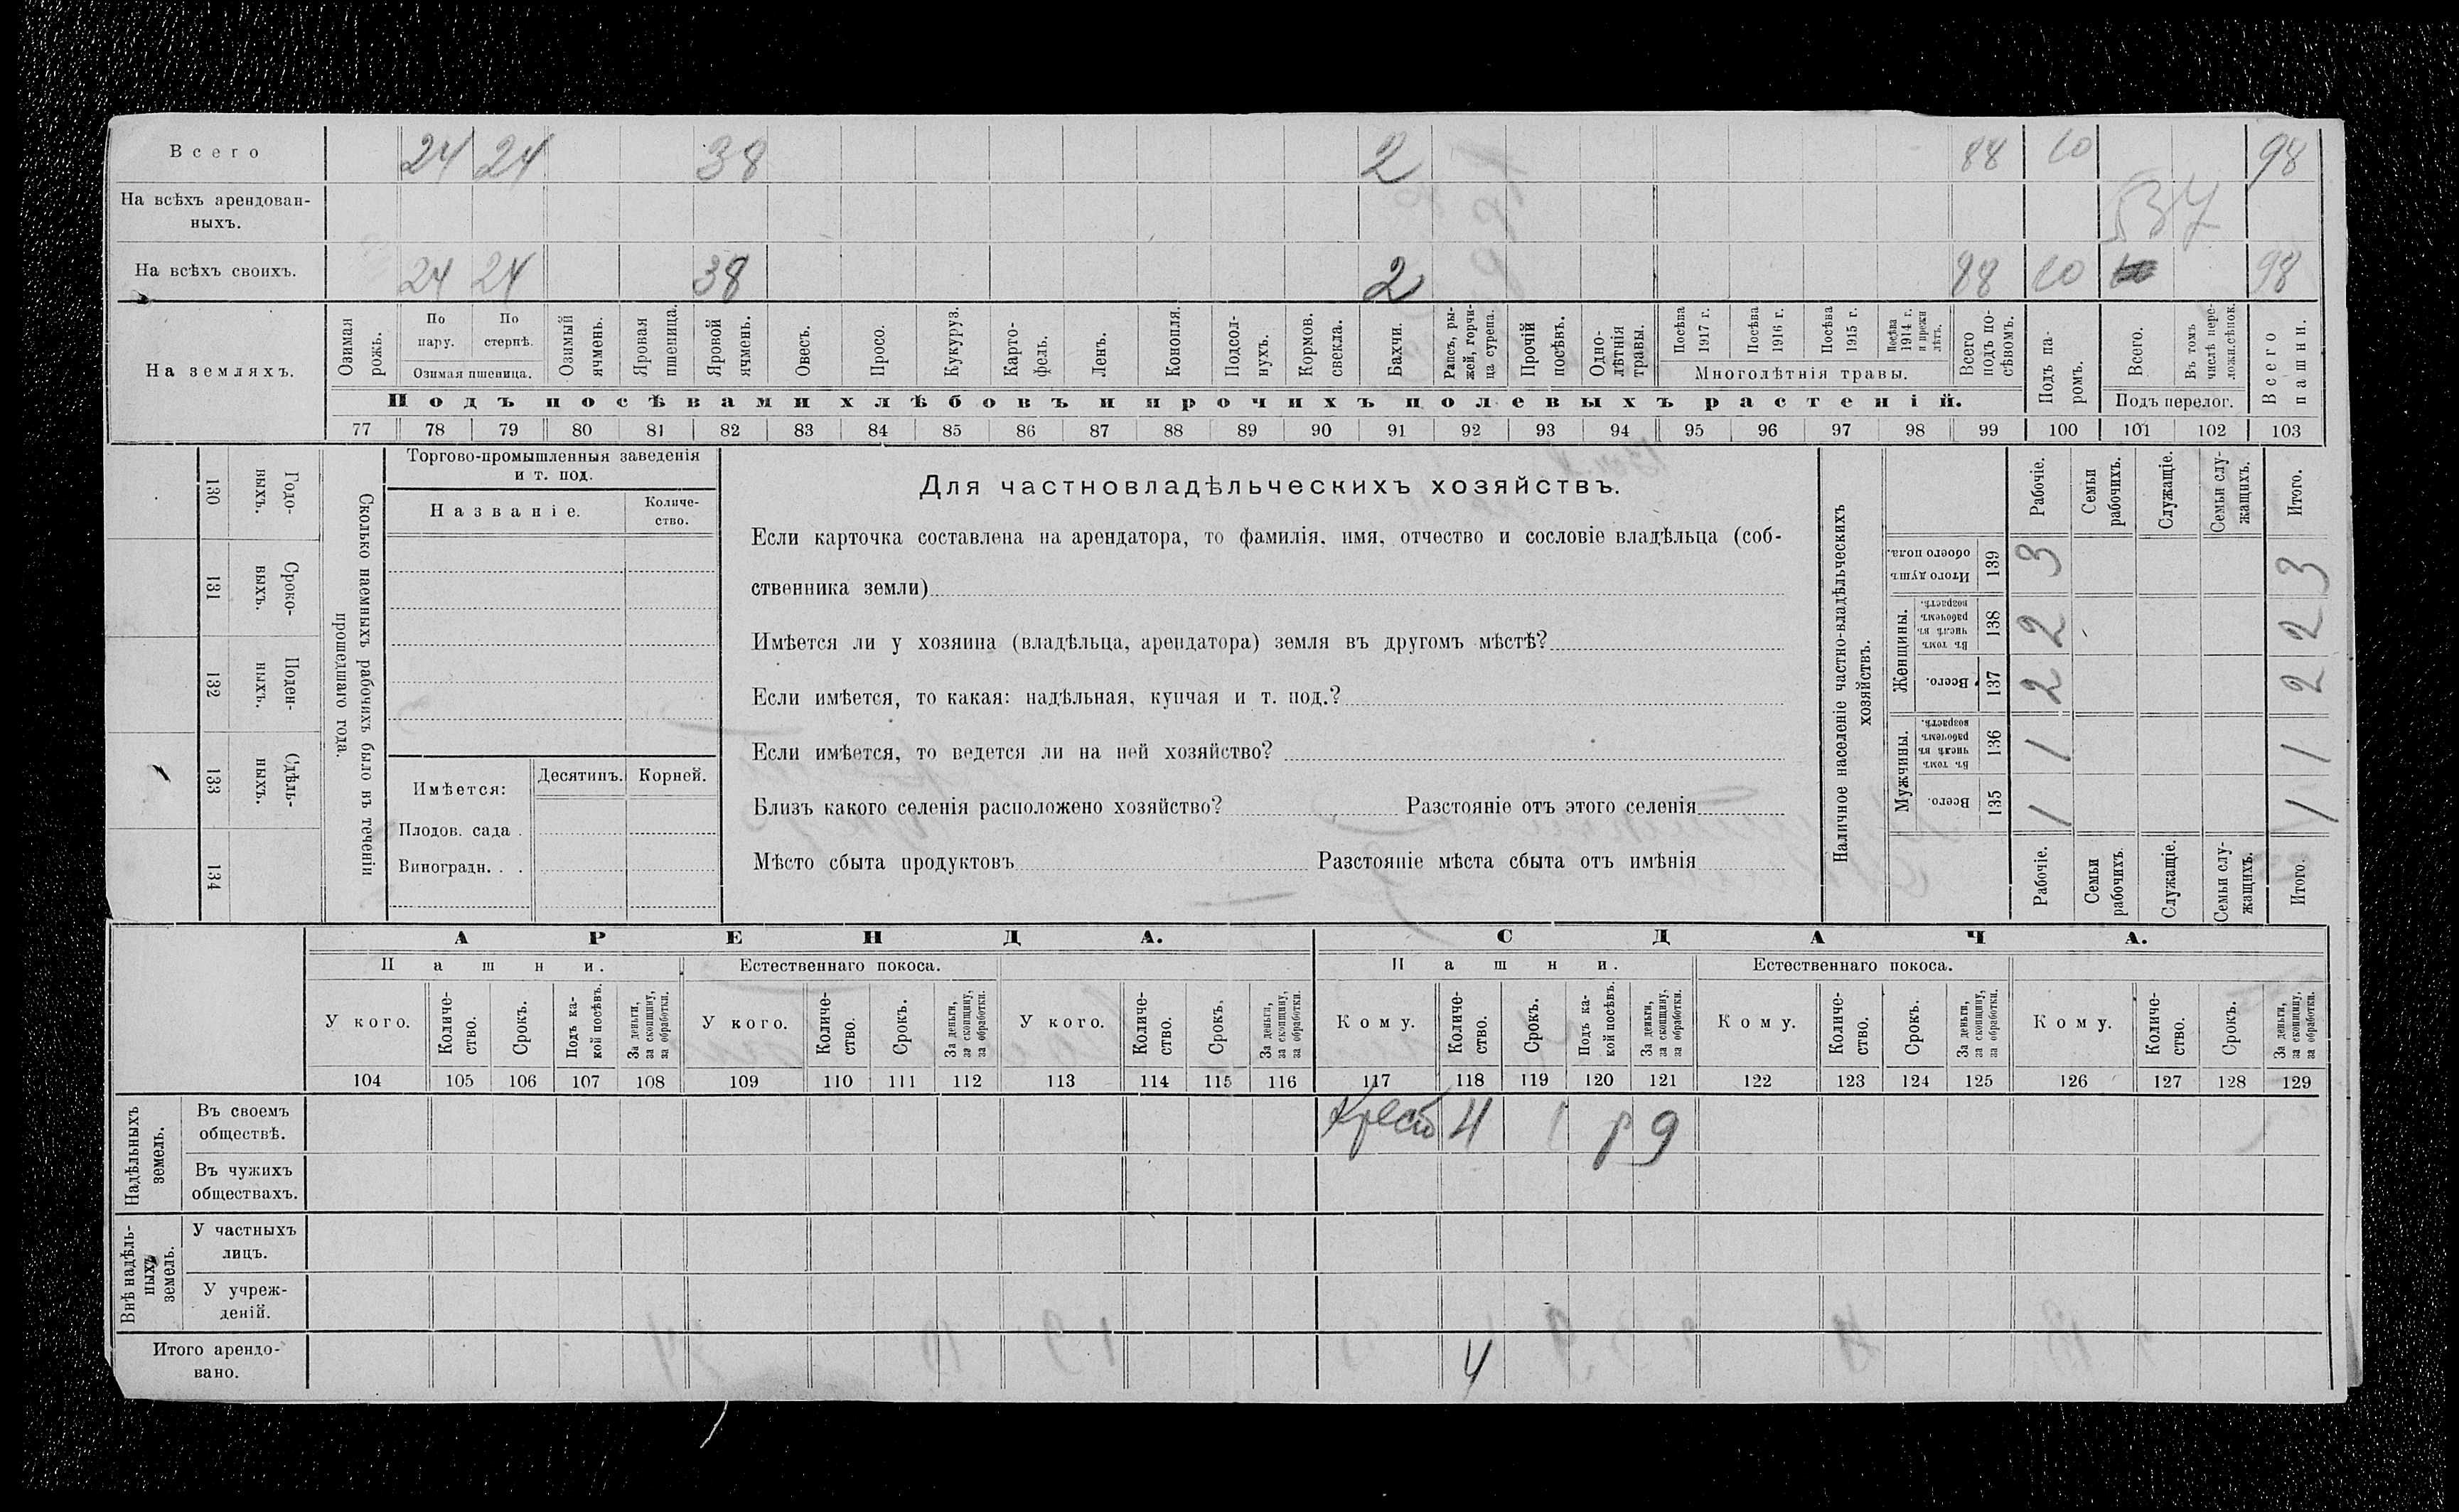 Всего 24 24 38 2 88 10 98
На всѣхъ арендован-
ныхъ.
537
На всѣхъ своихъ. 24 24 38 2 88 10 98
На земляхъ.
Озимая рожь.
По пару.
По стернѣ.
Озимая пшеница.
Озимый ячмень.
Яровая пшеница.
Яровой ячмень.
Овесъ.
Просо.
Кукуруз.
Карто-
фель.
Ленъ.
Конопля.
Подсол-
нухъ.
Кормов. свекла.
Бахчи.
Рапсъ, ры-
жей, горчи-
ца сурепа.
Прочій посѣвъ.
Одно-
лѣтнія травы.
Посѣва 1917 г.
Посѣва 1916 г.
Посѣва 1915 г.
Посѣва 1914 г. и прежн лѣтъ.
Многолѣтнія травы.
Всего подъ по-
сѣвомъ.
Подъ посѣвами хлѣбовъ и прочихъ полевыхъ растеній.
Подъ па-
ромъ.
Всего.
Въ томъ числѣ пере-
ложн.сѣнок.
Подъ перелог.
Всего пашни.
77 78 79 80 81 82 83 84 85 86 87 88 89 90 91 92 93 94 95 96 97 98 99 100 101 102 103
Годо-
выхъ.
130
Сроко-
выхъ.
131
Поден-
ныхъ.
132
Сдѣль-
ныхъ.
133
134
Сколько наемныхъ рабочихъ было въ теченіи
прошедшаго года.
Торгово-промышленныя заведенія
и т. под.
Названіе.
Количе-
ство.
Имѣется:
Десятинъ.
Корней.
Плодов. сада .
Виноградн. . .
Для частновладѣльческихъ хозяйствъ.
Если карточка составлена на арендатора, то фамилія, имя, отчество и сословіе владѣльца (соб-
ственника земли)
Имѣется ли у хозяина (владѣльца, арендатора) земля въ другомъ мѣстѣ?
Если имѣется, то какая: надѣльная, купчая и т. под.?
Если имѣется, то ведется ли на ней хозяйство?
Близъ какого селенія расположено хозяйство? Разстояніе отъ этого селенія
Мѣсто сбыта продуктовъ Разстояніе мѣста сбыта отъ имѣнія
Наличное населеніе частно-владѣльческихъ
хозяйствъ.
Рабочіе.
Семьи рабочихъ.
Служащіе.
Семьи слу-
жащихъ.
Итого.
Итого душъ обоего пола.
139 3 3
Женщины.
Въ томъ числѣ въ рабочемъ возрастѣ.
138 2 2
Всего.
137 2 2
Мужчины.
Въ томъ числѣ въ рабочемъ возрастѣ.
136 1 1
Всего.
135 1 1
Рабочіе.
Семьи рабочихъ.
Служащіе.
Семьи слу-
жащихъ.
Итого.
АРЕНДА. СДАЧА.
Пашни. Естественнаго покоса. Пашни. Естественнаго покоса.
У кого.
Количе-
ство.
Срокъ.
Подъ ка-
кой посѣвъ.
За деньги, за скопщину, за обработки.
У кого.
Количе-
ство.
Срокъ.
За деньги, за скопщину, за обработки.
У кого.
Количе-
ство.
Срокъ.
За деньги, за скопщину, за обработки.
Кому.
Количе-
ство.
Срокъ.
Подъ ка-
кой посѣвъ.
За деньги, за скопщину, за обработки.
Кому.
Количе-
ство.
Срокъ.
За деньги, за скопщину, за обработки.
Кому.
Количе-
ство.
Срокъ.
За деньги, за скопщину, за обработки.
104 105 106 107 108 109 110 111 112 113 114 115 116 117 118 119 120 121 122 123 124 125 126 127 128 129
Надѣльныхъ земель.
Въ своемъ
обществѣ.
4 1 9
Въ чужихъ
обществахъ.
Внѣ надѣль-
ныхъ земель.
У частныхъ
лицъ.
У учреж-
деній.
Итого арендо-
вано.
4